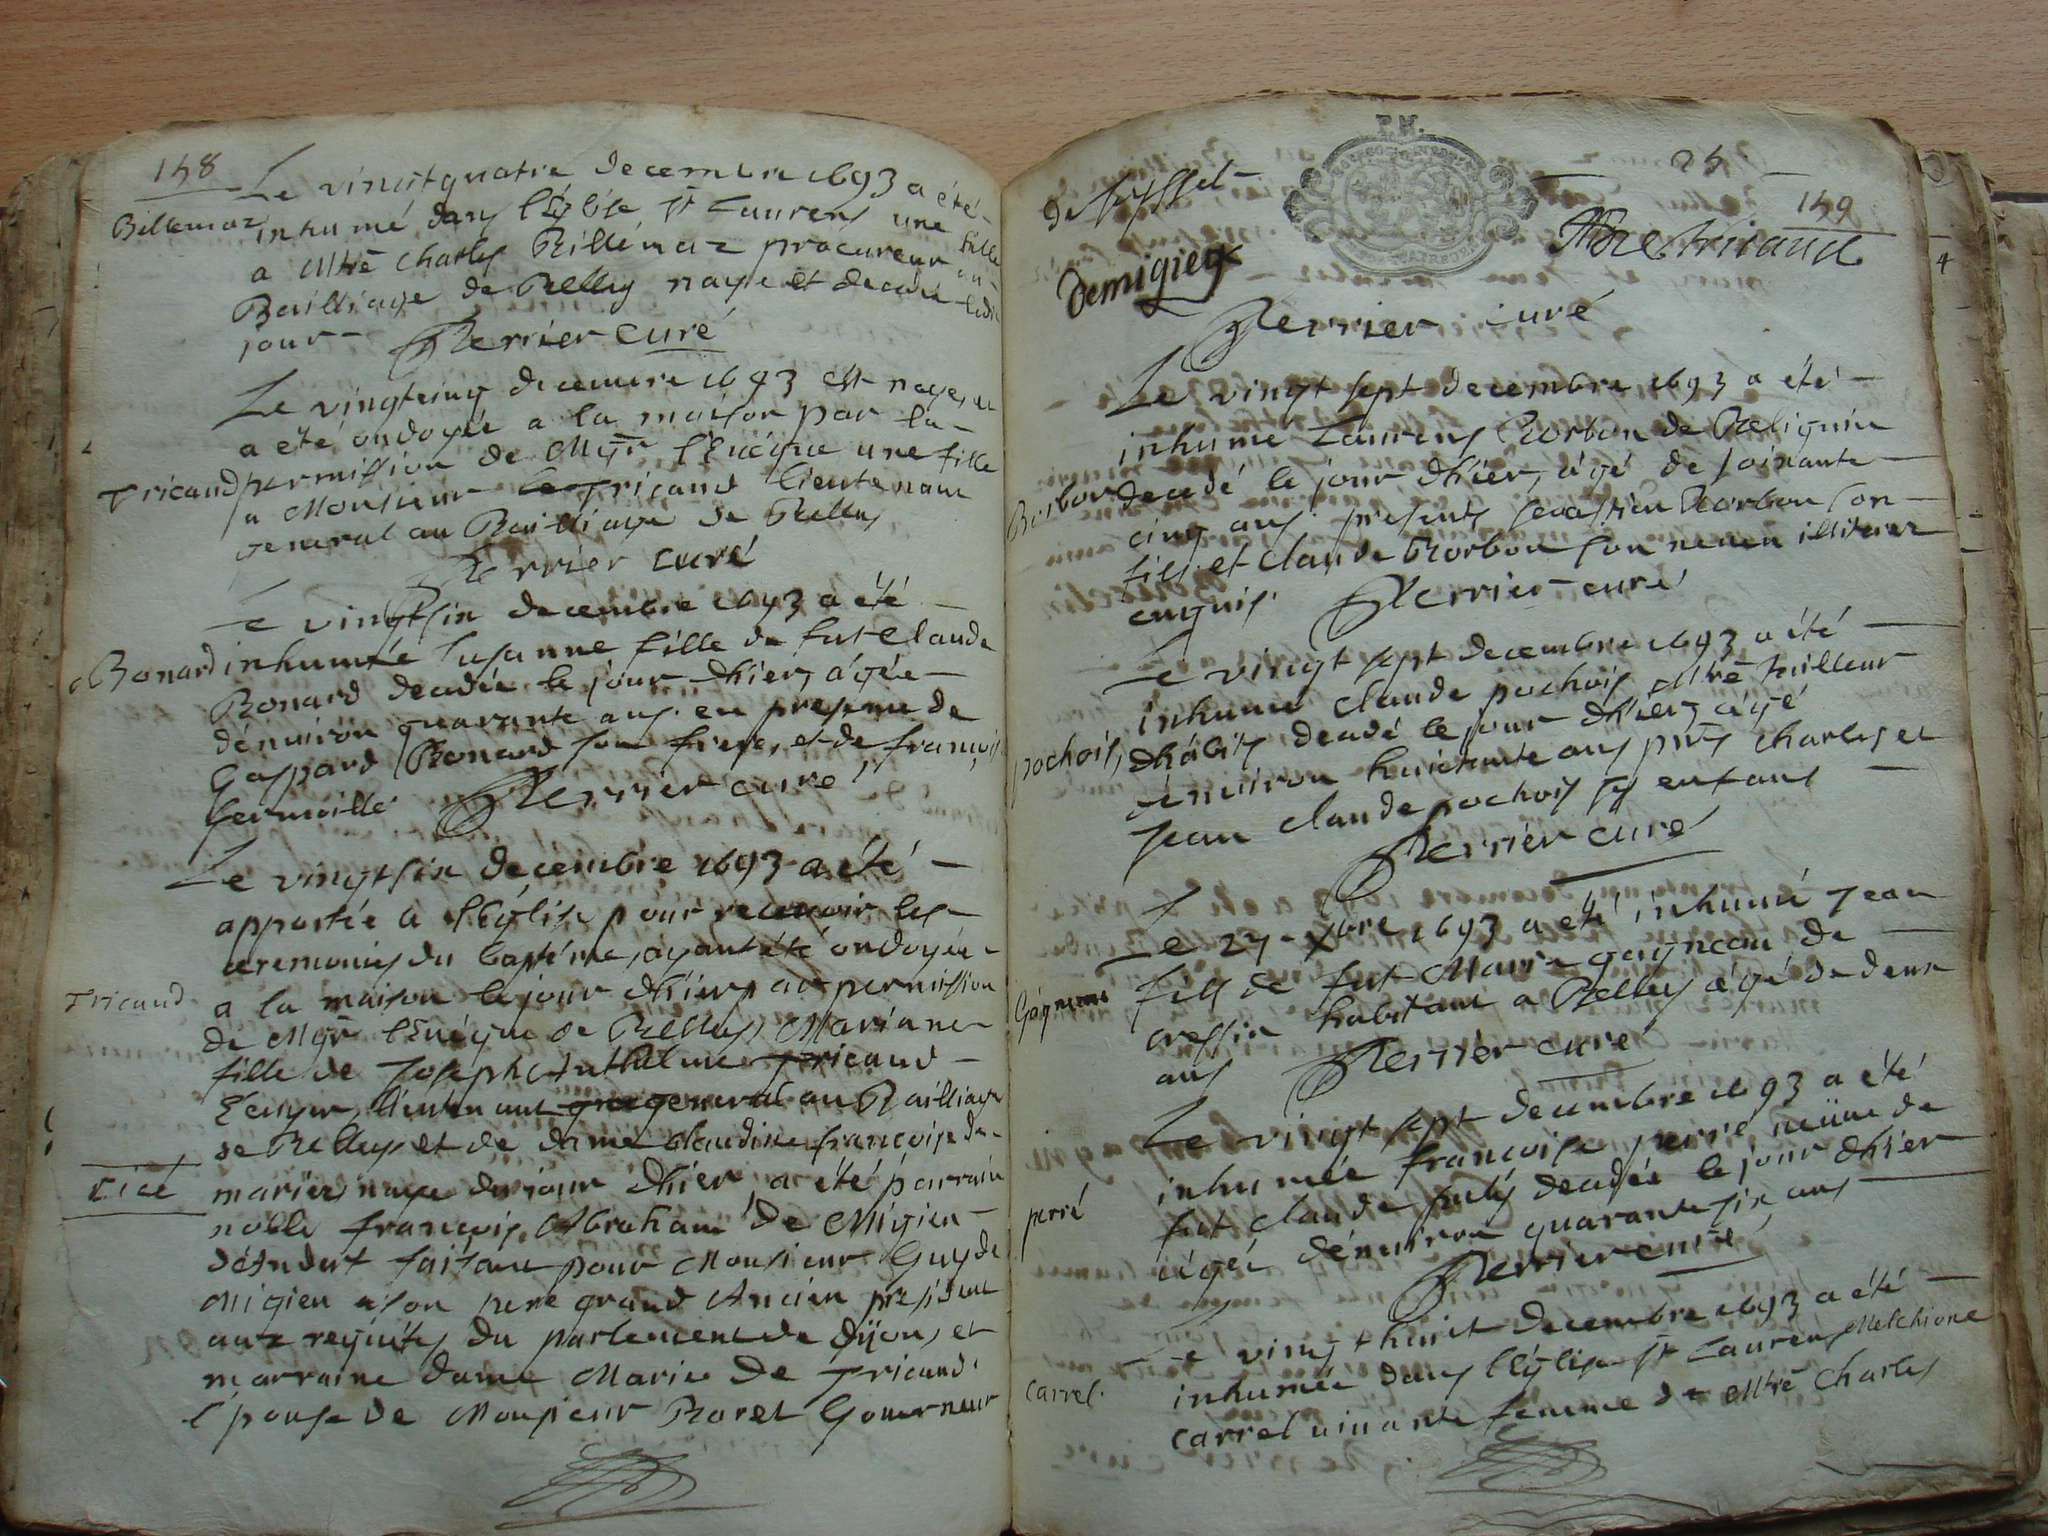 148
Le vingtquatre decembre 1693 a été
Billemaz
inhumé dans l'Eglise St Laurens une fille
a Mtre Charles Billemaz procureur au
Bailliage de Belley naye et decedée ledit
jour
Perrier curé
Le vingtcinq decembre 1693 est naye, et
a été ondoyée a la maison par la
Tricaud
permission de Mgr l'Eueque une fille
a Monsieur Tricaud lieutenant
general au Bailliage de Belley
Perrier curé
Le vingtsix decembre 1693 a été
Bonard
inhumée Susanne fille de fut Claude
Bonard decedée le jour dhier, agée
denuiron quarante ans en presence de
Gaspard Bonard son frere, et de françois
fermoille
Perrier curé
Le vingtsix decembre 1693 a été
apportée a l'Eglise pour receuoir les
ceremonies du baptéme, ayant été ondoyée
Tricaud
a la maison le jour dhier par permission
de Mgr l'Eueque de Belley Mariane
fille de Joseph Anthelme Tricaud
Ecuyer, lieutenant general au Bailliage
de Belley et de dame Claudine françoise de
marïer, naye du jour dhier a été parrain
noble françois Abraham de Migieu
faisant pour Monsieur Guy de
Migieu son pere grand Ancien president
aux requêtes du parlement de dijon, et
marraine dame Marie de Tricaud
Epouse de Monsieur Boret Gouuerneur
de seyssel
24
149
demigieu
Tricaud
Perrier curé
Le vingt sept decembre 1693 a été
inhumé Laurens Borbon de Beligniu
Borbon
decedé le jour dhier, agé de soixante
cinq ans presents sebastien Borbon son
fils et Claude Borbon son neueu illiterez
enquis
Perrier curé
Le vingt sept decembre 1693 a été
inhumé Claude pochois Mtre tailleur
pochois
dhabits decedé le jour dhier, agé
denuiron huictante ans pnts Charles et
Jean Claude pochois ses enfans
Perrier curé
Le 27 Xbre 1693 a été inhumé Jean
fils de fut Maure gaigneau de
cressin habitant a Belley agé de deux
ans
Perrier curé
Le vingt sept decembre 1693 a été
inhumée françoise perré neüue de
perré
fut Claude decedée le jour dhier
agée denuiron quarante six ans
Perrier curé
Le vingt huict decembre 1693 a été
inhumée dans l'Eglise St Laurens Melchione
Carrel
Carrel uiuante femme de Mtre Charles